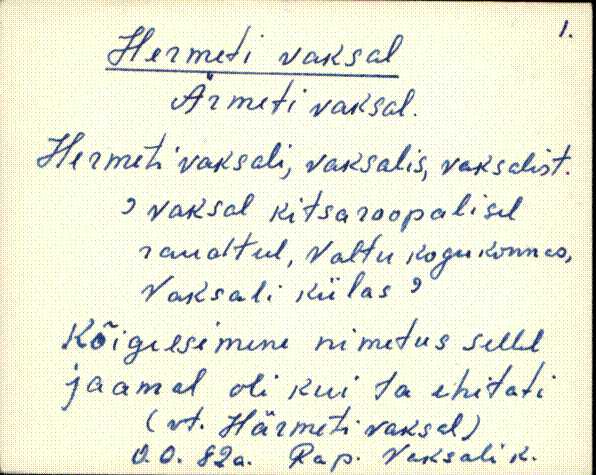 1.
Hermeti vaksal
Ärmeti vaksal.
Hermeti vaksali, vaksalis, vaksalist.
, vaksal kitsaroopalisel
raudtul, Valtu kogukonnas,
Vaksali külas ,
Kõigeesimene nimetus sellel
jaamal oli kui ta ehitati
(vt. Härmeti vaksal)
O.O. 82a. Rap. Vaksali k.